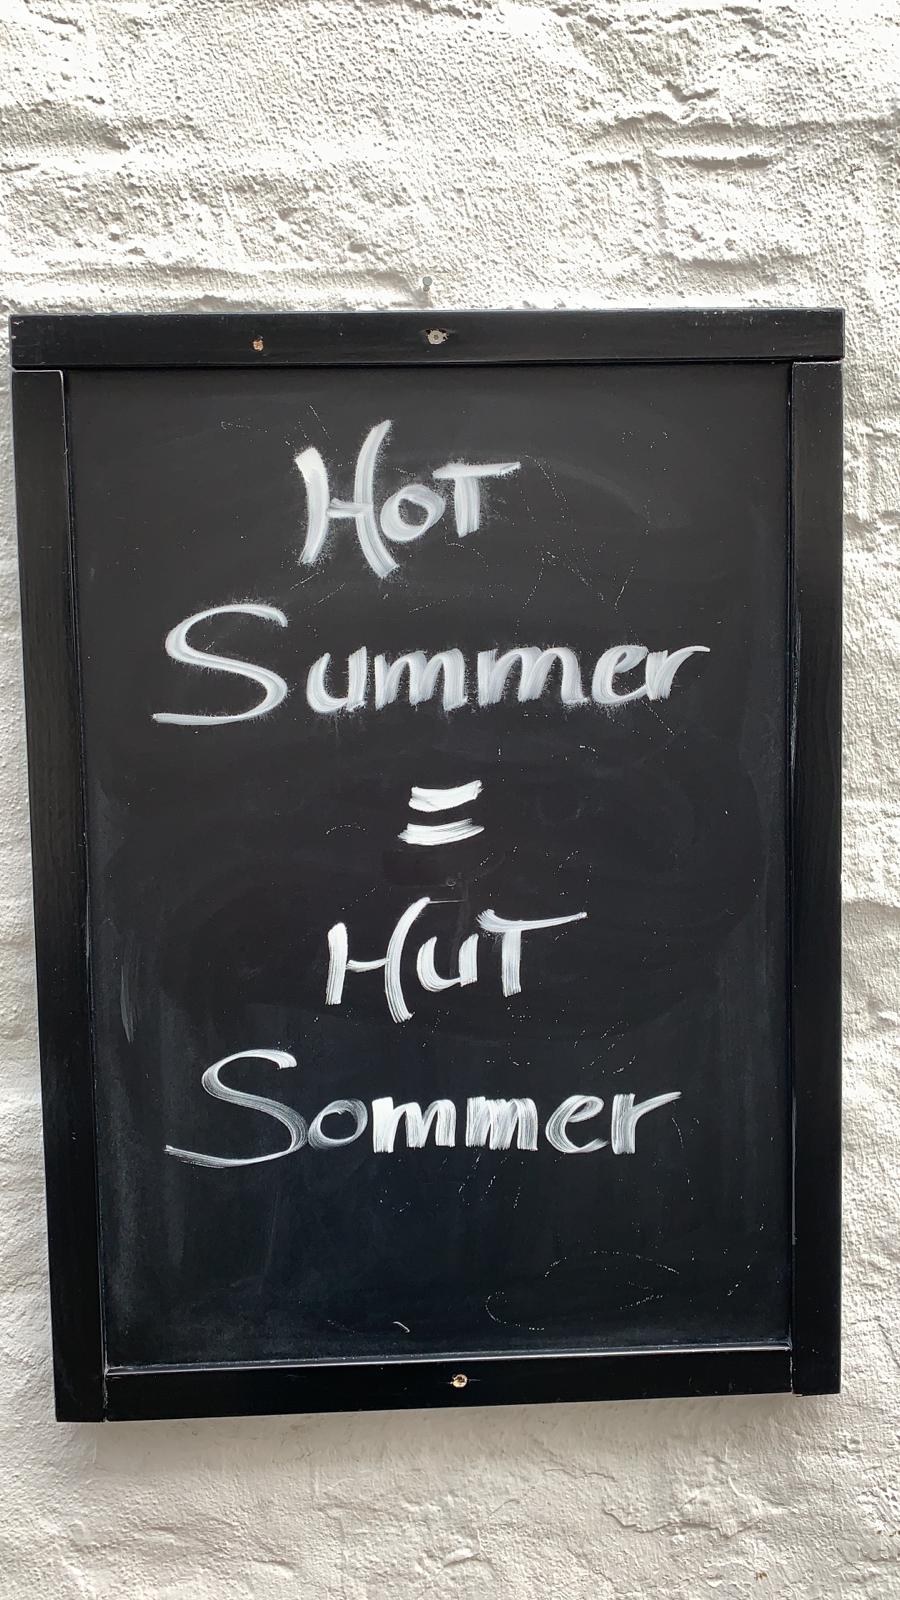 Hot
Summer
=
Hut
Sommer